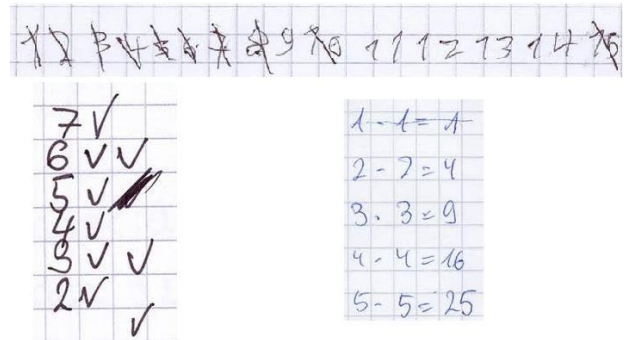 1 2 3 4 5 6 7 8 9 10 11 12 13 14 15
7 ✓
6 ✓ ✓
5 ✓
4 ✓
3 ✓ ✓
2 ✓
✓
1 · 1 = 1
2 · 2 = 4
3 · 3 = 9
4 · 4 = 16
5 · 5 = 25